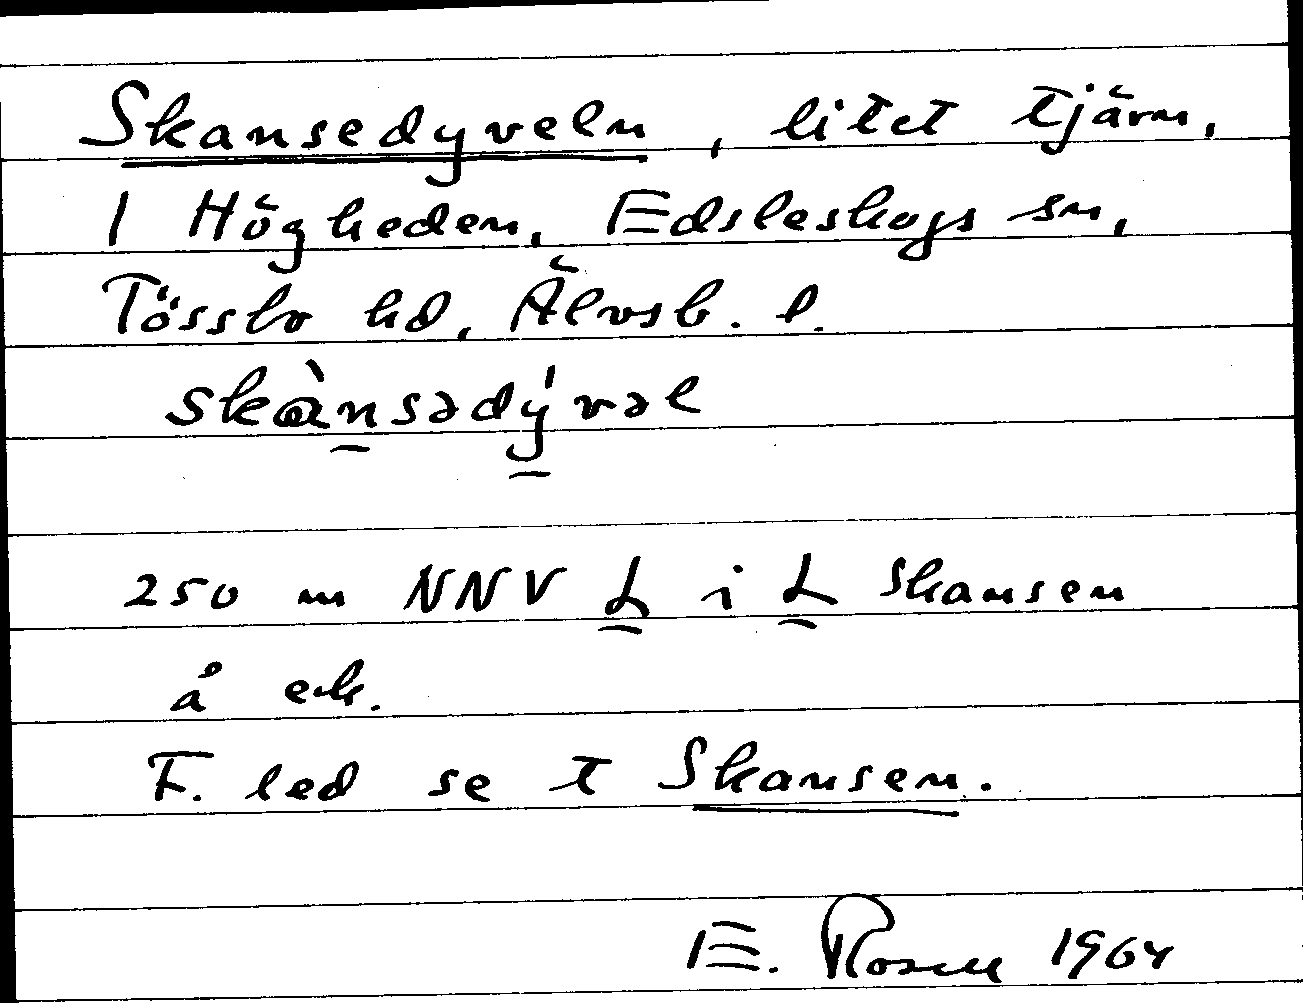 Skansedyveln, litet tjärn,
1 Högheden, Edsleskogs sn,
Tössbo hd, Älvsb. l.
skànsədývəl
250 m NNV L i L Skansen
å ek.
F. led se t Skansen.
E. Rosell 1964